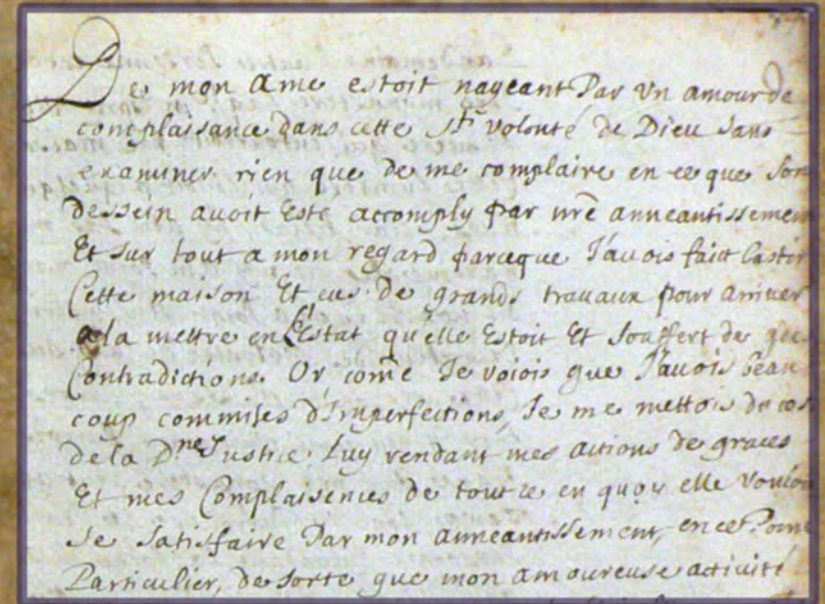 De mon ame estoit nageant Par un amour de
complaisance dans cette Ste volonté de Dieu sans
examiner rien que de me complaire en ce que son
dessein avoit Esté accomply par nre anneantissemen
Et sur tout a mon regard parceque J'avois faict bastir
Cette maison Et eus de grands travaux pour arriver
a la mettre en l'Estat qu'elle Estoit Et souffert de
Contradictions. Or come Je voiois que J'avois beau
coup commises d'Imperfections, Je me mettois du cos
de la Dne Justice Luy rendant mes actions de graces
Et mes Complaisences de tout ce en quoy elle vouloi
se satisfaire Par mon anneantissement, en ce Poin
Particulier, de sorte que mon amoureuse activité